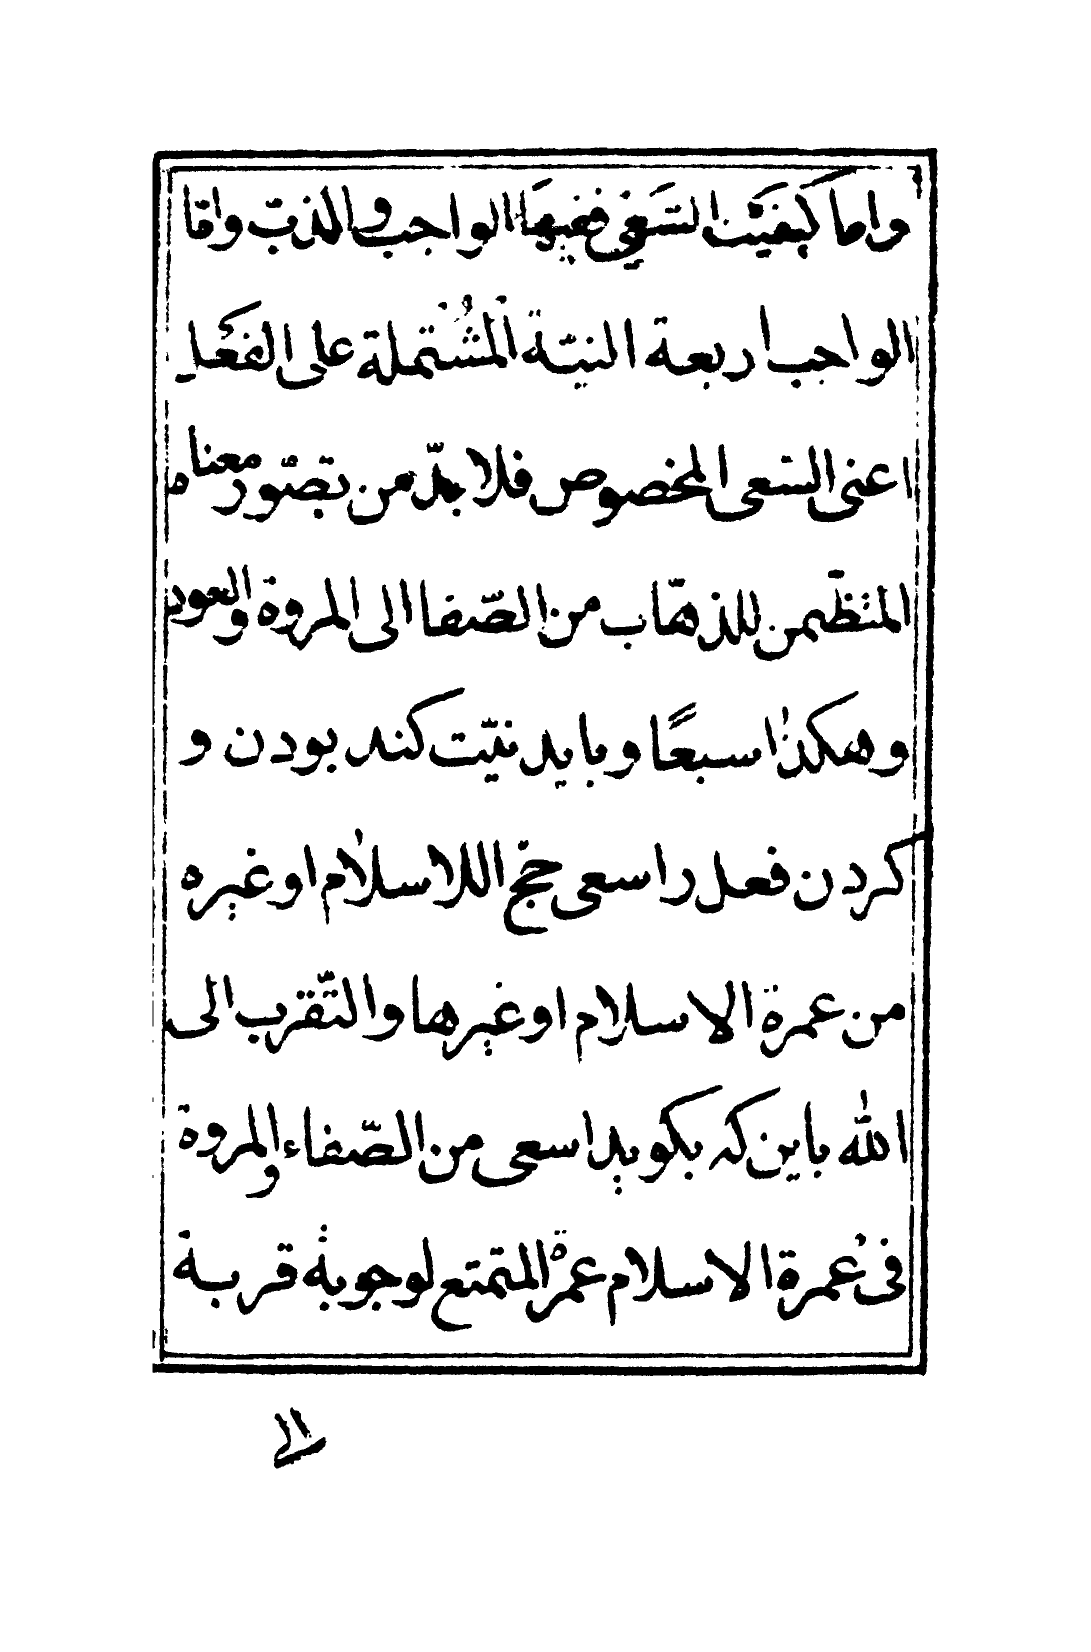 واما كيفيت السّعي ففيها الواجب والندبّ وامّا
الواجب اربعة النيّة المُشتملة على الفعل
اعنى السّعى المخصوص فلا بدّ من تصوّر معناه
المتظّمن للذهاب من الصّفا الى المروة والعود
وهكذا سبعًا و بايد نيّت كند بودن و
كردن فعل را سعى حجّ اللاسلام او غيره
من عمرة الاسلام او غيرها والتّقرب الى
الله باين كه بكويد اسعى من الصّفاء والمروة
فى عُمرة الاسلام عمرة المتمتع لوجوبه قربة
الى